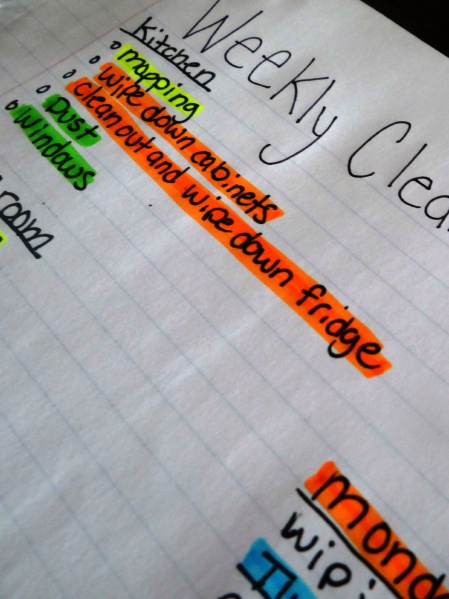 Weekly Clea
Kitchen
mopping
wipe down cabinets
clean out and wipe down fridge
Dust
Windows
room
mond
wipi